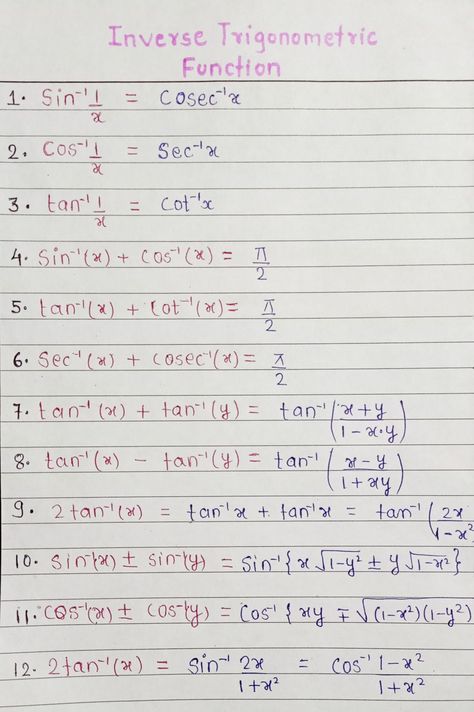 Inverse Trigonometric
Function
1. Sin⁻¹ 1/x = Cosec⁻¹x
2. Cos⁻¹ 1/x = Sec⁻¹x
3. tan⁻¹ 1/x = Cot⁻¹x
4. Sin⁻¹(x) + Cos⁻¹(x) = π/2
5. tan⁻¹(x) + Cot⁻¹(x) = π/2
6. Sec⁻¹(x) + Cosec⁻¹(x) = π/2
7. tan⁻¹(x) + tan⁻¹(y) = tan⁻¹((x+y)/(1-x·y))
8. tan⁻¹(x) - tan⁻¹(y) = tan⁻¹((x-y)/(1+xy))
9. 2tan⁻¹(x) = tan⁻¹x + tan⁻¹x = tan⁻¹(2x/(1-x²
10. Sin⁻¹(x) ± Sin⁻¹(y) = Sin⁻¹{x√(1-y²) ± y√(1-x²)}
11. Cos⁻¹(x) ± Cos⁻¹(y) = Cos⁻¹{xy ∓ √((1-x²)(1-y²))
12. 2tan⁻¹(x) = Sin⁻¹ 2x/(1+x²) = Cos⁻¹ (1-x²)/(1+x²)